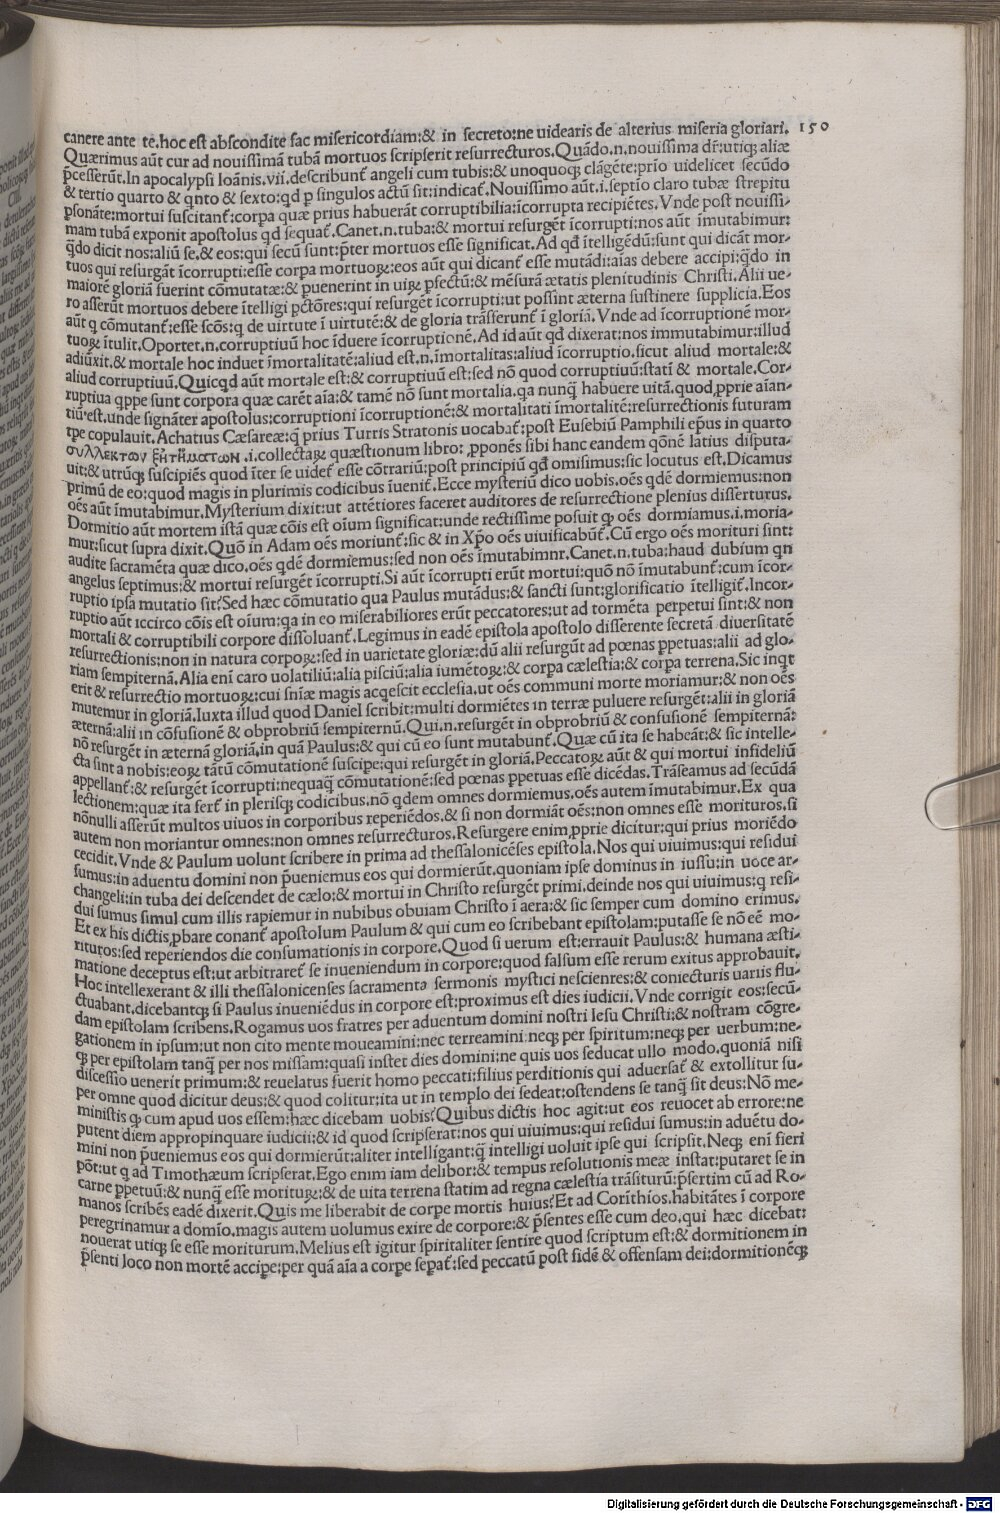 canere ante te.hoc est abscondite fac misericordiam:& in secreto:ne uidearis de alterius miseria gloriari. 150
Quærimus aūt cur ad nouissimā tubā mortuos scripserit resurrecturos.Quādo.n.nouissima dr̄:utiq; aliæ
p̄cesserūt.In apocalypsi Ioānis.vii.describunt̃ angeli cum tubis:& unoquoq; clāgēte:prio uidelicet secūdo
& tertio quarto & qnto & sexto:qd p singulos actū sit:indicat̃.Nouissimo aūt.i.septio claro tubæ strepitu
psonāte:mortui suscitant̃:corpa quæ prius habuerāt corruptibilia:īcorrupta recipiētes.Vnde post nouissi-
mam tubā exponit apostolus qd sequat̃.Canet.n.tuba:& mortui resurgēt īcorrupti:nos aūt īmutabimur:
q̄do dicit nos:aliū se,& eos:qui secū sunt:p̄ter mortuos esse significat.Ad qd ītelligēdū:sunt qui dicāt mor-
tuos qui resurgāt īcorrupti:esse corpa mortuoꝝ:eos aūt qui dicant̃ esse mutādi:aīas debere accipi:q̄do in
maiorē gloriā fuerint cōmutatæ:& puenerint in uiꝝ pfectū:& mēsurā ætatis plenitudinis Christi.Alii ue-
ro asserūt mortuos debere ītelligi pctōres:qui resurgēt īcorrupti:ut possint æterna sustinere supplicia.Eos
aūt q cōmutant̃:esse scōs:q de uirtute ī uirtutē:& de gloria trāsserunt̃ ī gloriā.Vnde ad īcorruptionē mor-
tuoꝝ ītulit.Oportet.n.corruptiuū hoc īduere īcorruptionē.Ad id aūt qd dixerat:nos immutabimur:illud
adiūxit.& mortale hoc induet īmortalitatē:aliud est.n.īmortalitas:aliud īcorruptio.sicut aliud mortale:&
aliud corruptiuū.Quicqd aūt mortale est:& corruptiuū est:sed nō quod corruptiuū:statī & mortale.Cor-
ruptiua qppe sunt corpora quæ carēt aīa:& tamē nō sunt mortalia.qa nunq̄ habuere uitā.quod pprie aīan-
tiū est.unde signāter apostolus:corruptioni īcorruptionē:& mortalitati īmortalitē:resurrectionis futuram
tpe copulauit.Achatius Cæsareæ:q̄ prius Turris Stratonis uocabat̃:post Eusebiū Pamphili ep̄us in quarto
συλλεκτων ζητηματων .i.collectaꝝ quæstionum libro: pponēs sibi hanc eandem qōnē latius disputa-
uit:& utrūq; suscipiēs quod īter se uidet̃ esse cōtrariū:post principiū qd omisimus:sic locutus est.Dicamus
primū de eo:quod magis in plurimis codicibus īuenit̃.Ecce mysteriū dico uobis.oēs qdē dormiemus:non
oēs aūt īmutabimur.Mysterium dixit:ut attētiores faceret auditores de resurrectione plenius disserturus.
Dormitio aūt mortem istā quæ cōis est oīum significat:unde rectissime posuit q̄ oēs dormiamus.i.moria-
mur:sicut supra dixit.Quō in Adam oēs moriunt̃:sic & in Xp̄o oēs uiuificabūt̃.Cū ergo oēs morituri sint:
audite sacramēta quæ dico.oēs qdē dormiemus:sed non oēs īmutabimnr.Canet.n.tuba:haud dubium qn
angelus septimus:& mortui resurgēt īcorrupti.Si aūt īcorrupti erūt mortui:quō nō īmutabunt̃:cum īcor-
ruptio ipsa mutatio sit?Sed hæc cōmutatio qua Paulus mutādus:& sancti sunt:glorificatio ītelligit̃.Incor-
ruptio aūt iccirco cōis est oīum:qa in eo miserabiliores erūt peccatores:ut ad tormēta perpetui sint:& non
mortali & corruptibili corpore dissoluant̃.Legimus in eadē epistola apostolo disserente secretā diuersitatē
resurrectionis:non in natura corpoꝝ:sed in uarietate gloriæ:dū alii resurgūt ad pœnas ppetuas:alii ad glo-
riam sempiternā.Alia enī caro uolatiliū:alia pisciū:alia iumētoꝝ:& corpa cælestia:& corpa terrena.Sic inqt
erit & resurrectio mortuoꝝ:cui sn̄iæ magis acqescit ecclesia.ut oēs communi morte moriamur:& non oēs
mutemur in gloriā.Iuxta illud quod Daniel scribit:multi dormiētes in terræ puluere resurgēt:alii in gloriā
æternā:alii in cōfusionē & obprobriū sempiternū.Qui.n.resurgēt in obprobriū & confusionē sempiternā:
nō resurgēt in æternā gloriā,in quā Paulus:& qui cū eo sunt mutabunt̃.Quæ cū ita se habeāt:& sic intelle-
cta sint a nobis:eoꝝ tātū cōmutationē suscipe:qui resurgēt in gloriā.Peccatoꝝ aūt & qui mortui infideliū
appellant̃:& resurgēt īcorrupti:nequaq̄ cōmutationē:sed pœnas ppetuas esse dicēdas.Trāseamus ad secūdā
lectionem:quæ ita fert̃ in plerisq; codicibus.nō qdem omnes dormiemus,oēs autem īmutabimur.Ex qua
nōnulli asserūt multos uiuos in corporibus reperiēdos.& si non dormiāt oēs:non omnes esse morituros.si
autem non moriantur omnes:non omnes resurrecturos.Resurgere enim pprie dicitur:qui prius moriēdo
cecidit.Vnde & Paulum uolunt scribere in prima ad thessalonicēses epistola.Nos qui uiuimus:qui residui
sumus:in aduentu domini non p̄ueniemus eos qui dormierūt.quoniam ipse dominus in iussu:in uoce ar-
changeli:in tuba dei descendet de cælo:& mortui in Christo resurgēt primi.deinde nos qui uiuimus:q resi-
dui sumus simul cum illis rapiemur in nubibus obuiam Christo ī aera:& sic semper cum domino erimus.
Et ex his dictis pbare conant̃ apostolum Paulum & qui cum eo scribebant epistolam:putasse se nō eē mo-
rituros:sed reperiendos die consumationis in corpore.Quod si uerum est:errauit Paulus:& humana æsti-
matione deceptus est:ut arbitraret̃ se inueniendum in corpore:quod falsum esse rerum exitus approbauit.
Hoc intellexerant & illi thessalonicenses sacramenta sermonis mystici nescientes:& coniecturis uariis flu-
ctuabant.dicebantq; si Paulus inueniēdus in corpore est:proximus est dies iudicii.Vnde corrigit eos:secū-
dam epistolam scribens.Rogamus uos fratres per aduentum domini nostri Iesu Christi:& nostram cōgre-
gationem in ipsum:ut non cito mente moueamini:nec terreamini neq; per spiritum:neq; per uerbum:ne-
q; per epistolam tanq̄ per nos missam:quasi instet dies domini:ne quis uos seducat ullo modo.quoniā nisi
discessio uenerit primum:& reuelatus fuerit homo peccati:filius perditionis qui aduersat̃ & extollitur su-
per omne quod dicitur deus:& quod colitur:ita ut in templo dei sedeat:ostendens se tanq̄ sit deus:Nō me-
ministis q̄ cum apud uos essem:hæc dicebam uobis?Quibus dictis hoc agit:ut eos reuocet ab errore:ne
putent diem appropinquare iudicii:& id quod scripserat:nos qui uiuimus:qui residui sumus:in aduētu do-
mini non p̄ueniemus eos qui dormierūt:aliter intelligant:q̄ intelligi uoluit ipse qui scripsit.Neq; enī fieri
pōt:ut q ad Timothæum scripserat.Ego enim iam delibor:& tempus resolutionis meæ instat:putaret se in
carne ppetuū:& nunq̄ esse morituꝝ:& de uita terrena statim ad regna cælestia trāsiturū:p̄sertim cū ad Ro-
manos scribēs eadē dixerit.Quis me liberabit de corpe mortis huius?Et ad Corīthios.habitātes ī corpore
peregrinamur a domīo.magis autem uolumus exire de corpore:& p̄sentes esse cum deo.qui hæc dicebat:
nouerat utiq; se esse moriturum.Melius est igitur spiritaliter sentire quod scriptum est:& dormitionem in
p̄senti loco non mortē accipe:per quā aīa a corpe sepat̃:sed peccatū post fidē & offensam dei:dormitionēq;
Digitalisierung gefördert durch die Deutsche Forschungsgemeinschaft - DFG